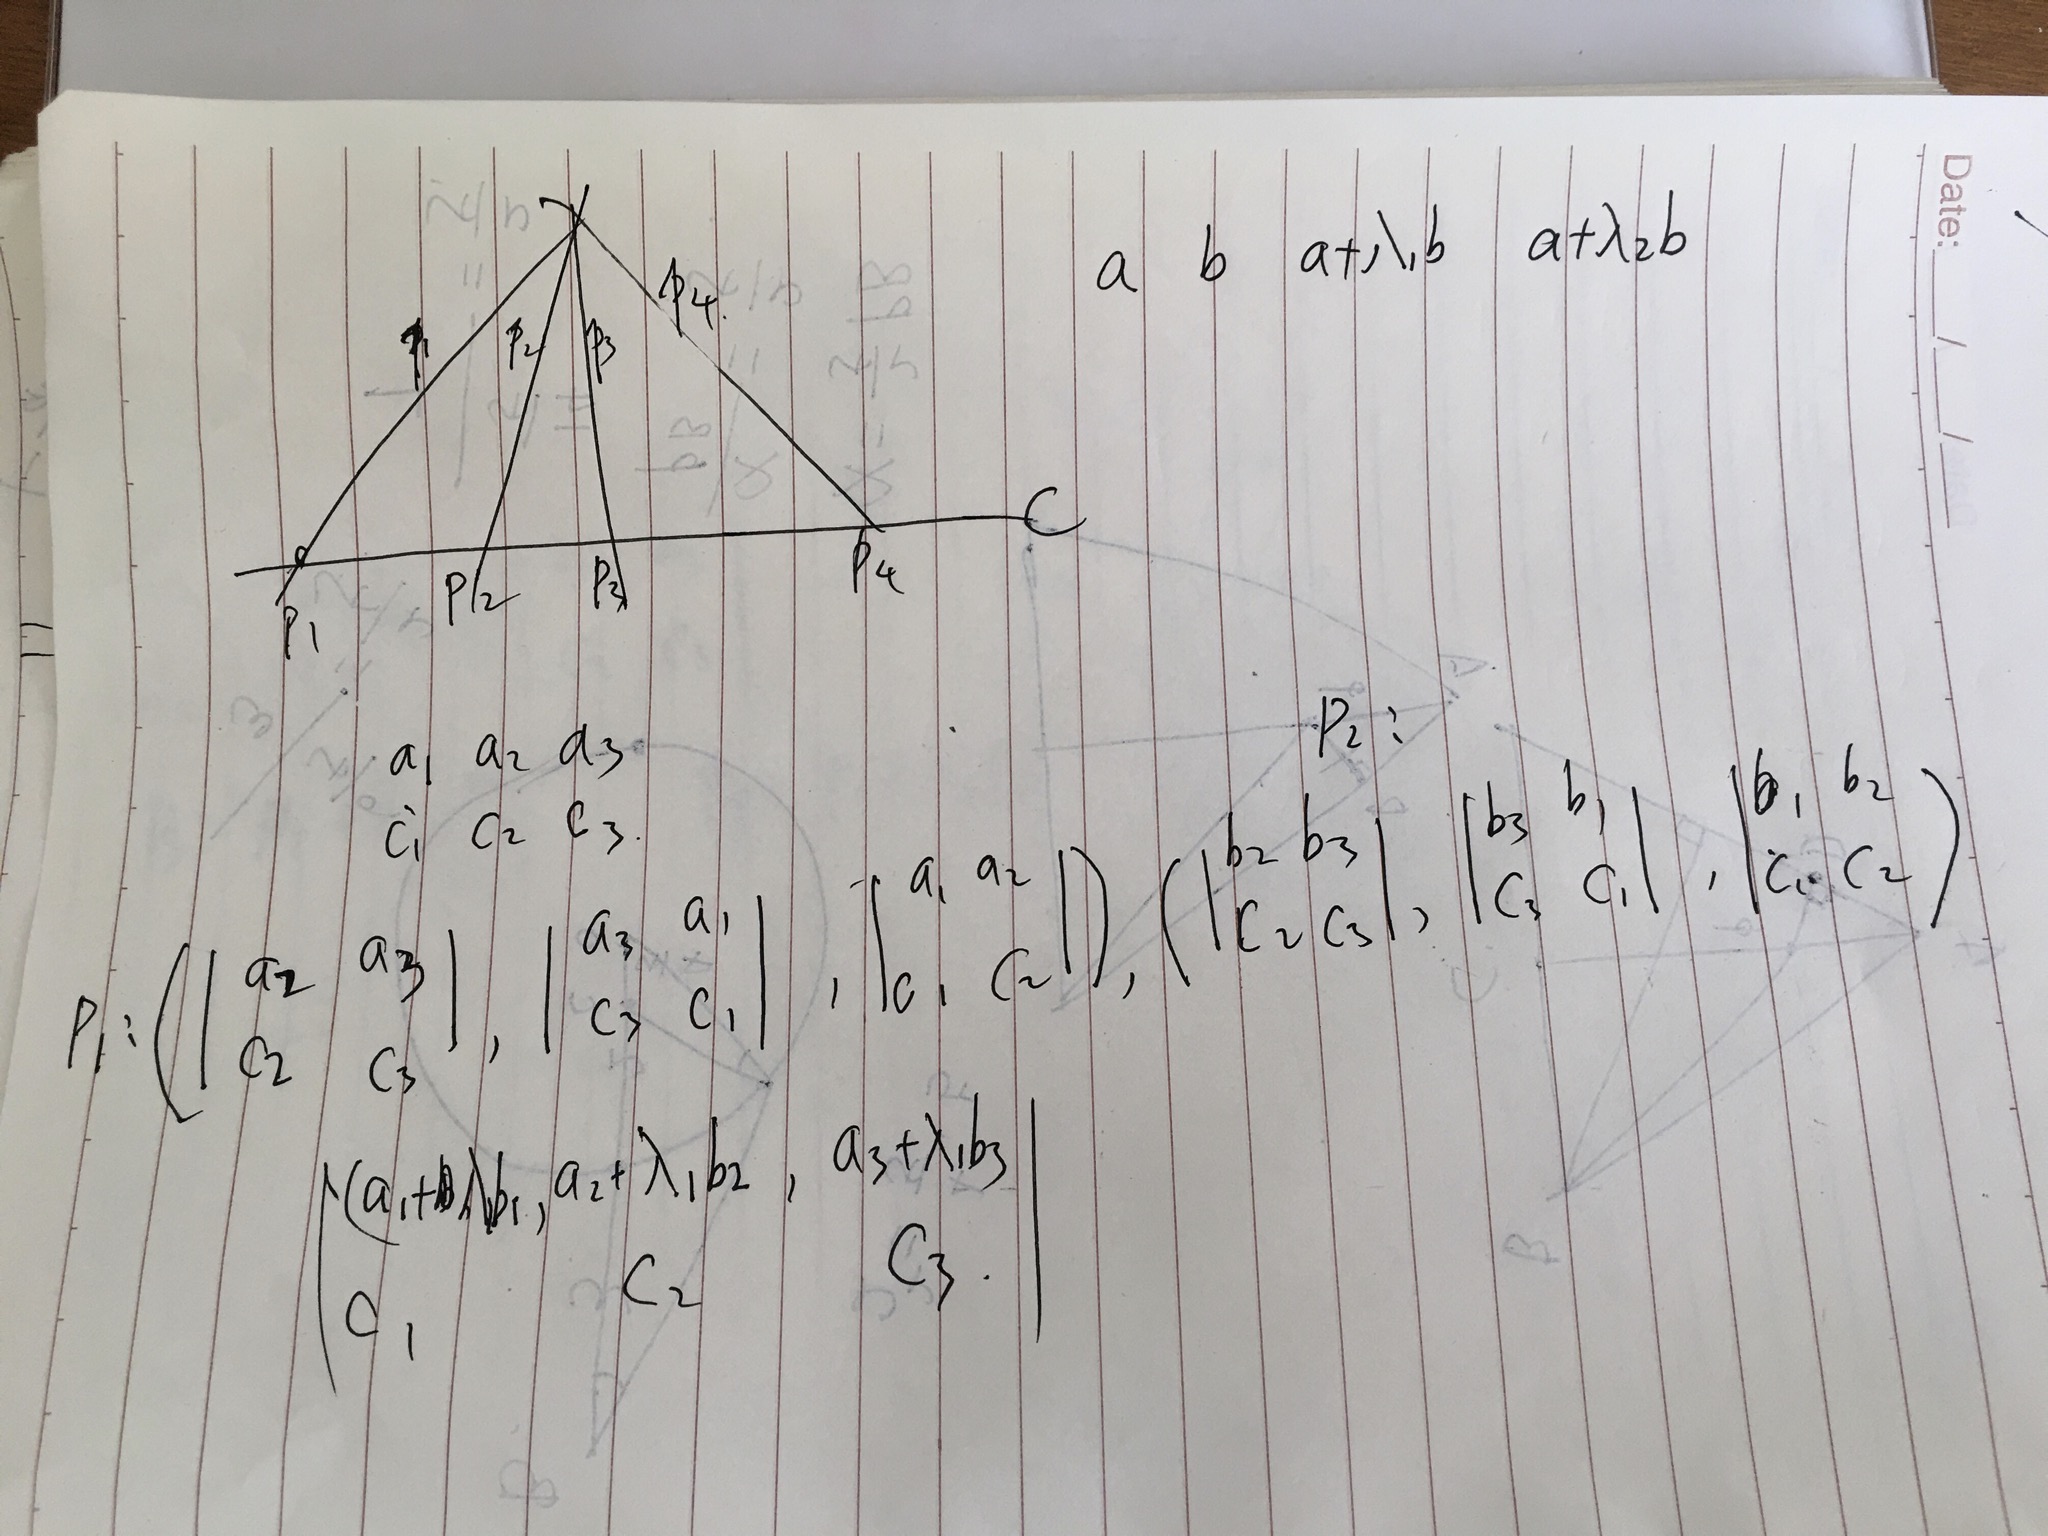 Date: ___/___/___
a b a+λ₁b a+λ₂b
p₁ p₂ p₃ p₄
C
P₁ P₂ P₃ P₄
a₁ a₂ a₃
c₁ c₂ c₃.
P₂:
P₁: (|a₂ a₃; c₂ c₃|, |a₃ a₁; c₃ c₁|, |a₁ a₂; c₁ c₂|), (|b₂ b₃; c₂ c₃|, |b₃ b₁; c₃ c₁|, |b₁ b₂; c₁ c₂|)
|(a₁+λb₁, a₂+λ₁b₂, a₃+λ₁b₃
c₁ c₂ c₃.|